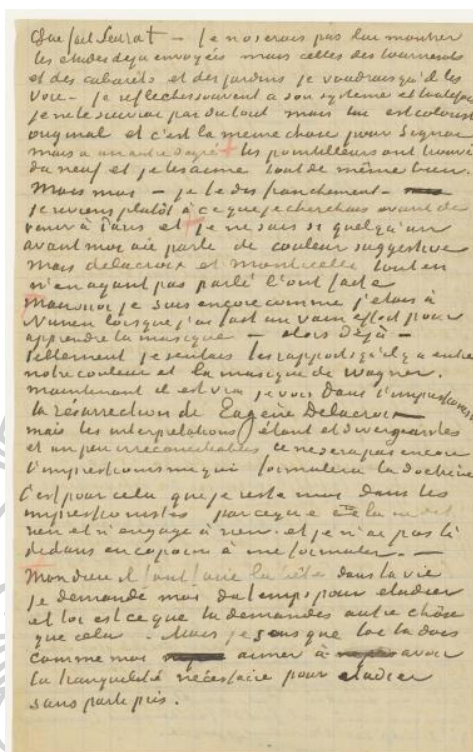 Que fait Seurat – je n'oserais pas lui montrer
les etudes deja envoyées mais celles des tournesols
et des cabarets et des jardins je voudrais qu'il les
voie – je reflechis souvent a son systeme et toutefois
je ne le suivrai pas du tout mais lui est coloriste
original et c'est la meme chose pour Signac
mais a un autre degré les pointilleurs ont trouvé
du neuf et je les aime tout de même bien.
Mais moi – je le dis franchement –
je reviens plutôt à ce que je cherchais avant de
venir à Paris et je ne sais si quelqu'un
avant moi aie parlé de couleur suggestive
Mais delacroix et Monticelli tout en
n'en ayant pas parlé l'ont faite
Mais moi je suis encore comme j'etais à
Nunen lorsque j'ai fait un vain effort pour
apprendre la musique – alors déjà –
tellement je sentais les rapports qu'il y a entre
notre couleur et la musique de Wagner.
maintenant il est vrai je vois dans l'impressionisme
la résurrection de Eugène Delacroix
mais les interpretations étant et divergeantes
et un peu irreconciliables ce ne sera pas encore
l'impressionisme qui formulera la doctrine
C'est pour cela que je reste moi dans les
impressionistes parceque cela ne dit
rien et n'engage à rien et je n'ai pas là
dedans en copain à me formuler. –
Mon dieu il faut faire la bête dans la vie
je demande moi du temps pour etudier
et toi est ce que tu demandes autre chôse
que cela. Mais je sens que toi tu dois
comme moi aimer à avoir
la tranquilité nécessaire pour etudier
sans parti pris.